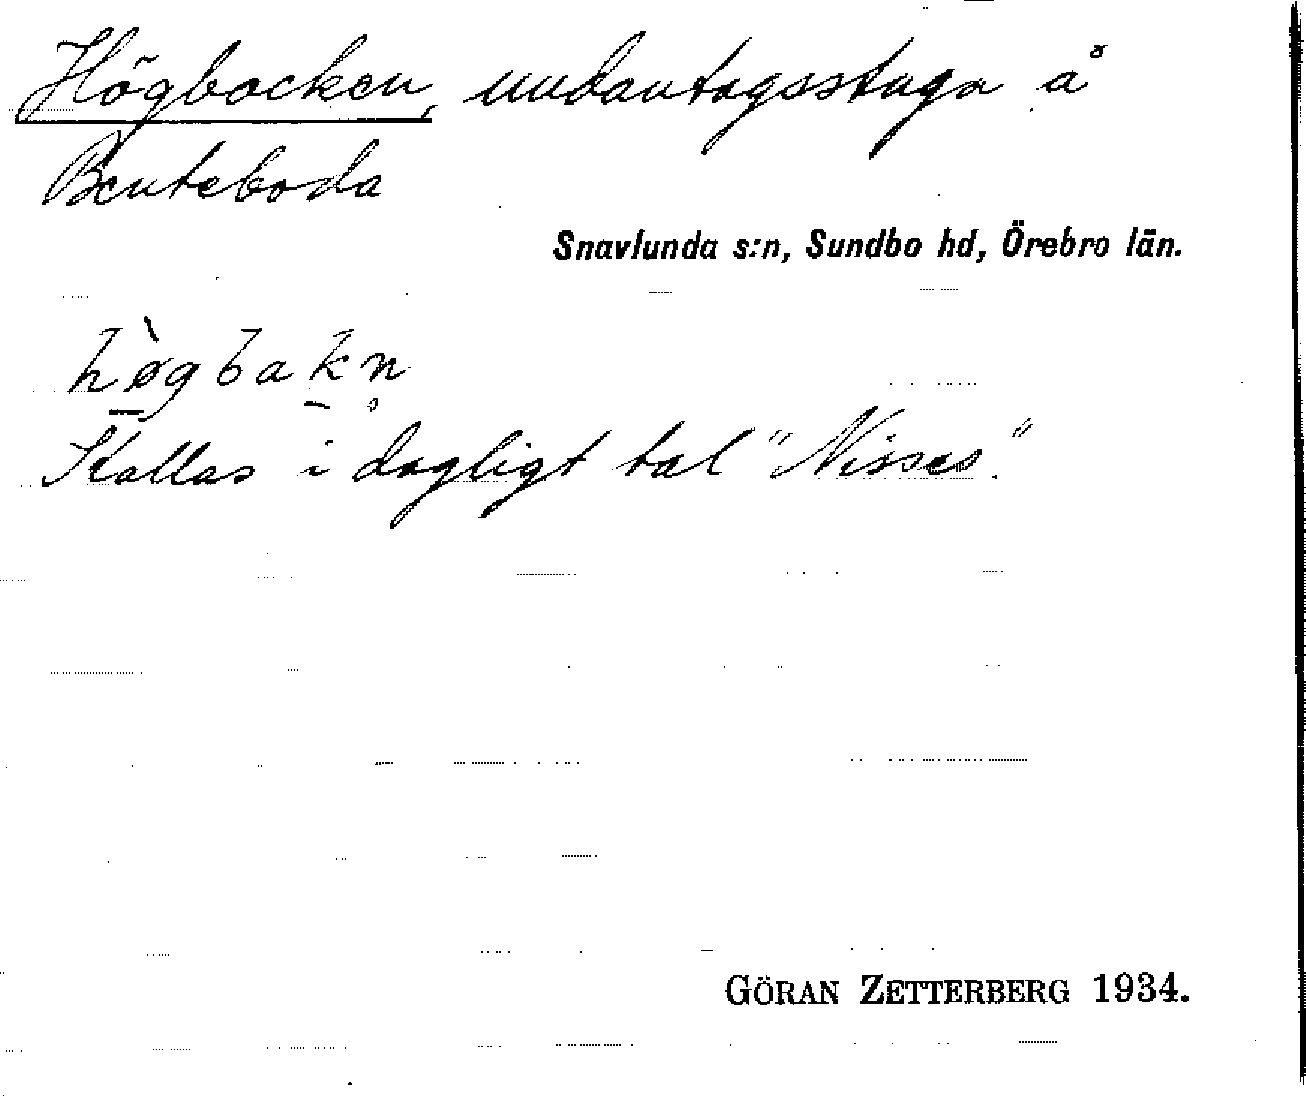 Högbacken, undantagsstuga å
Benteboda
Snavlunda s:n, Sundbo hd, Örebro län.
hø̀gbakn̥
Kallas i dagligt tal "Nisses."
GÖRAN ZETTERBERG 1934.